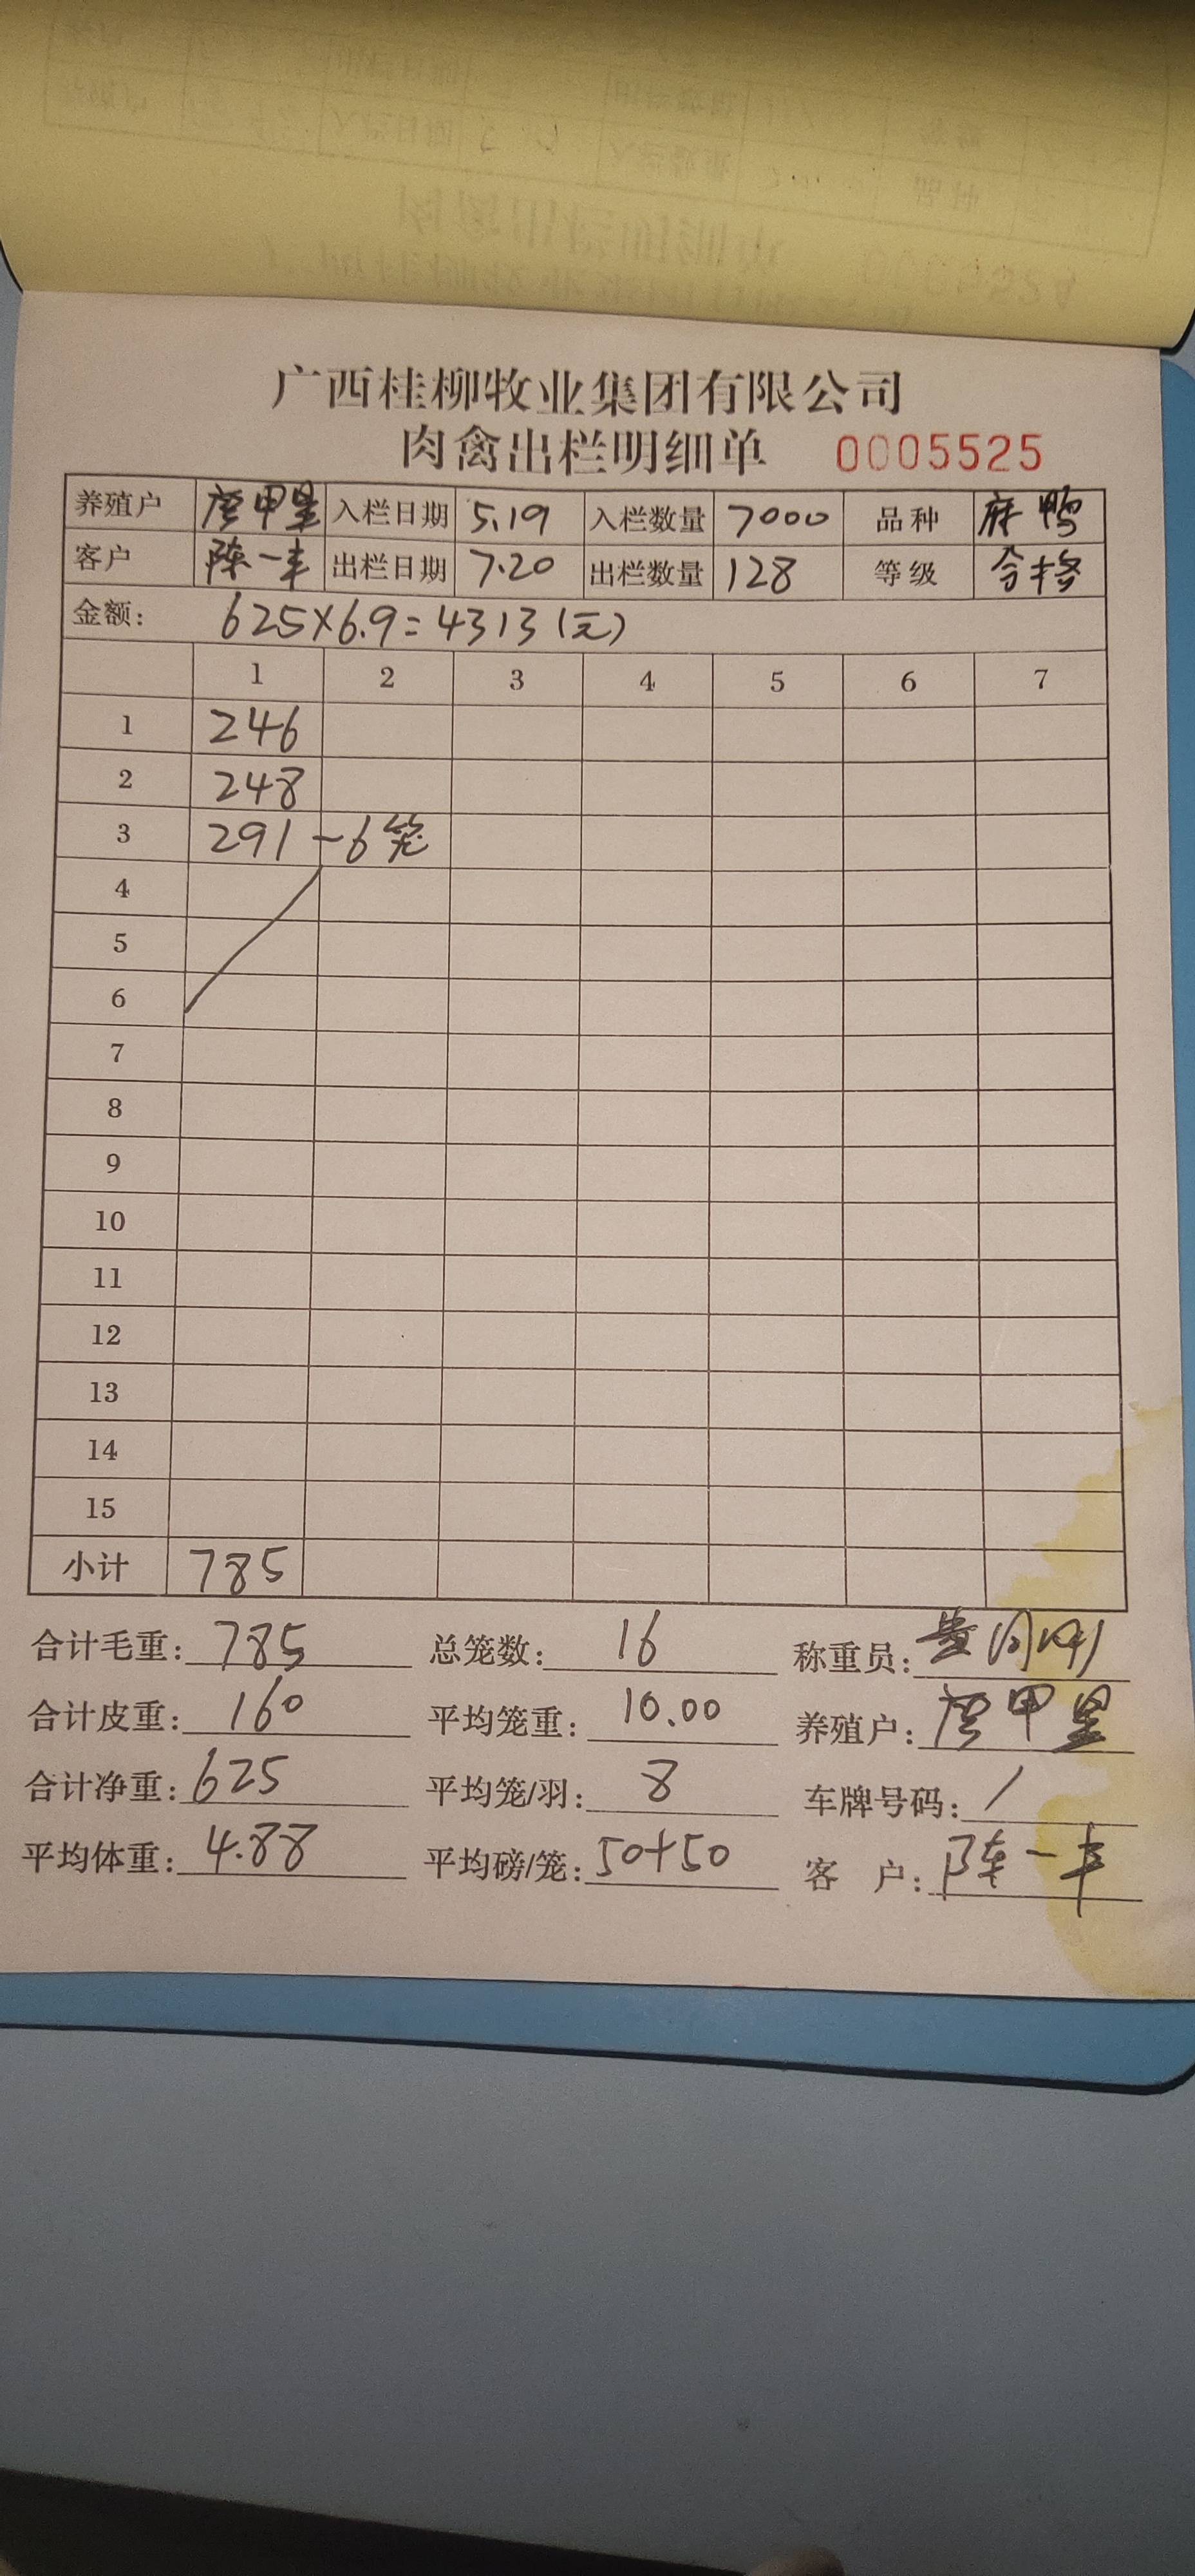 广西桂柳牧业集团有限公司
肉禽出栏明细单 0005525
养殖户 唐甲星 入栏日期 5.19 入栏数量 7000 品种 麻鸭
客户 陈一丰 出栏日期 7.20 出栏数量 128 等级 合格
金额: 625×6.9=4313(元)
1 2 3 4 5 6 7
1 246
2 248
3 291-6笼
4
5
6
7
8
9
10
11
12
13
14
15
小计 785
合计毛重: 785 总笼数: 16 称重员:
合计皮重: 160 平均笼重: 10.00 养殖户: 唐甲星
合计净重: 625 平均笼/羽: 8 车牌号码: /
平均体重: 4.88 平均磅/笼: 50+50 客 户: 陈一丰